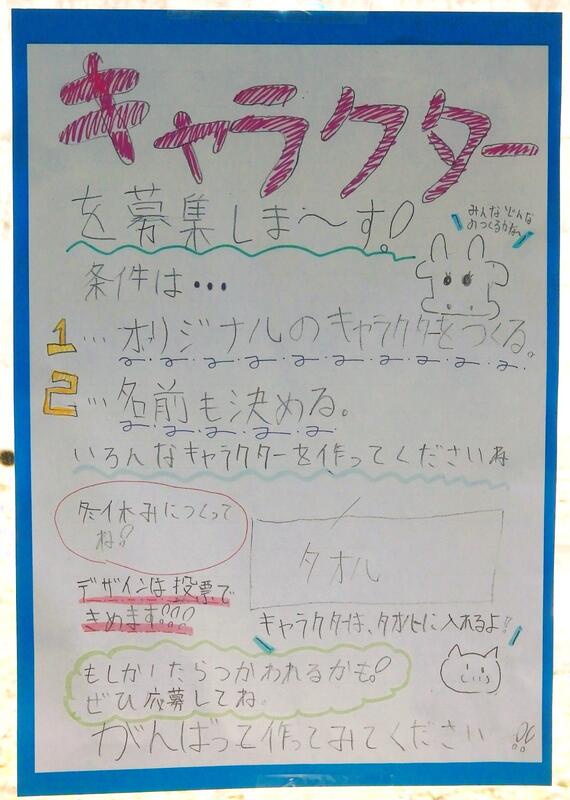 キャラクター
を募集しま〜す!
みんなどんな
のつくるかな〜
条件は・・・
1…オリジナルのキャラクターをつくる。
2…名前も決める。
いろんなキャラクターを作ってくださいね
冬休みにつくって
ね!!
タオル
デザインは投票で
きめます!!!
キャラクターは、タオルに入れるよ!!
もしかしたらつかわれるかも!
ぜひ応募してね。
がんばって作ってみてください!!